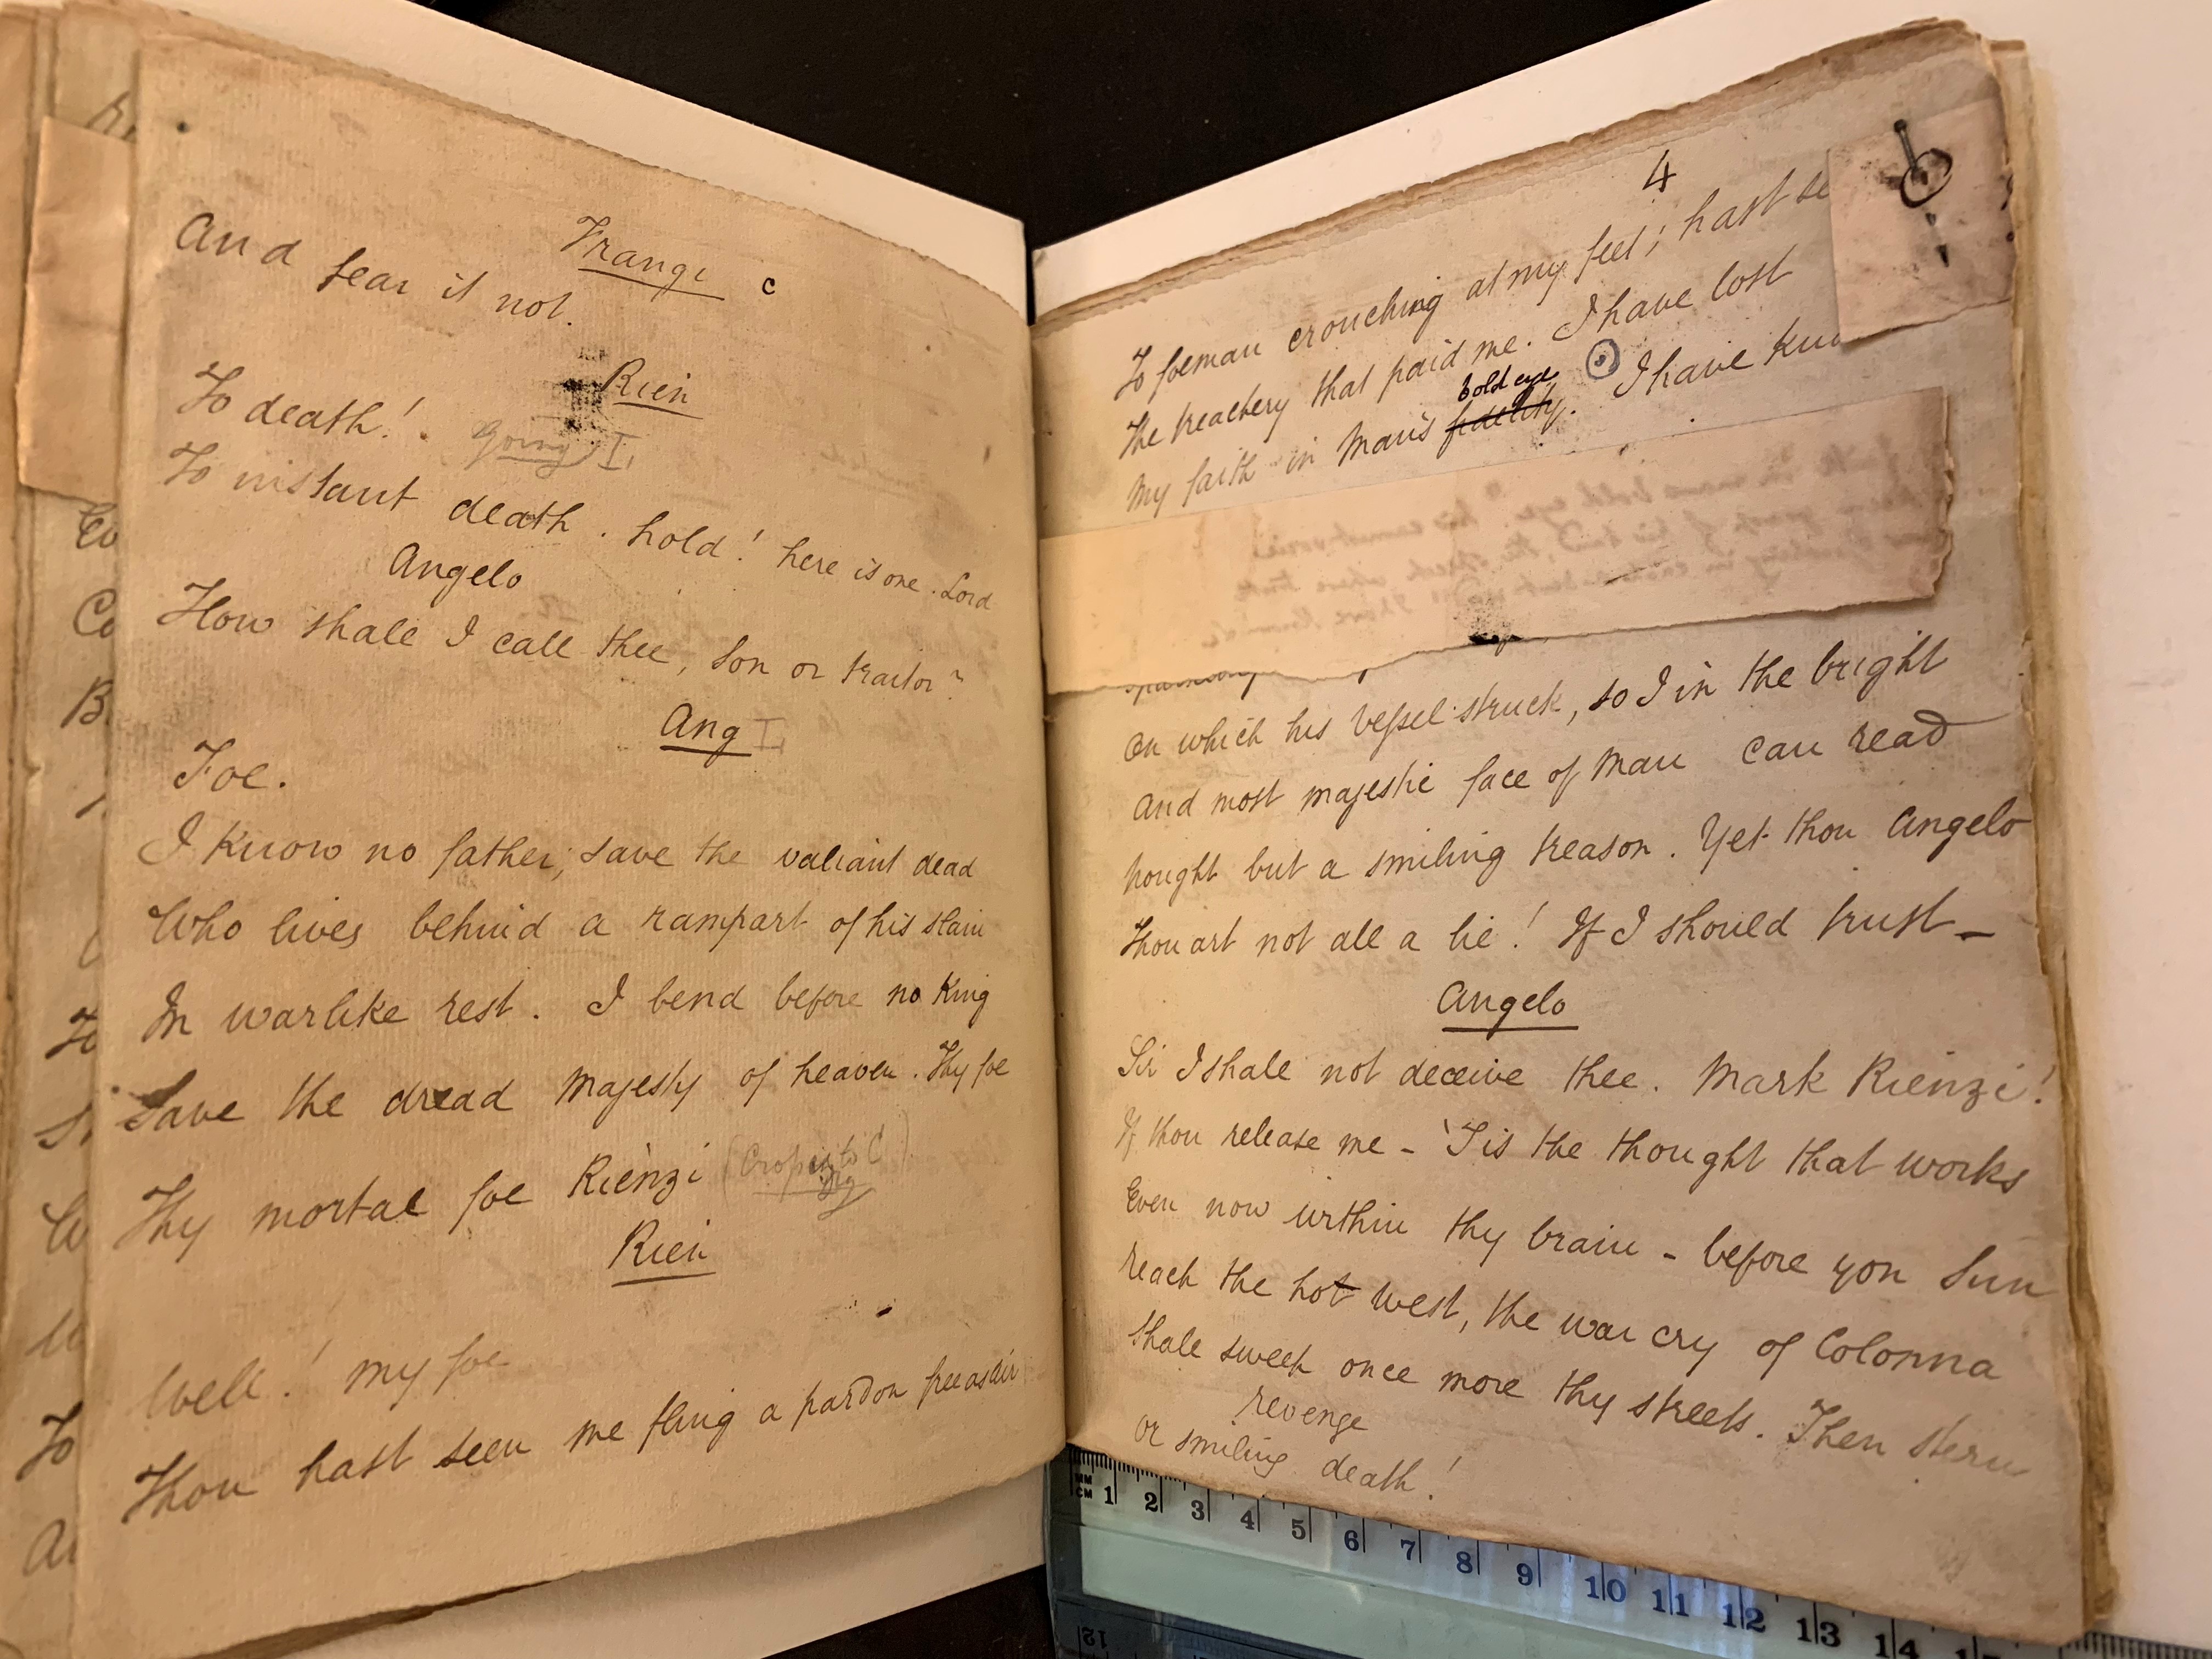 Frangi c
And fear it not.
Rien
To death!
Going I,
To instant death. hold! here is one. Lord
Angelo
How shall I call thee, son or traitor?
Ang
Foe.
I know no father, save the valiant dead
Who lives behind a rampart of his slain
In warlike rest. I bend before no King
Save the dread Majesty of heaven. Thy foe
Thy mortal foe Rienzi
Rien
Well! my foe
Thou hast seen me fling a pardon free as air
4
To foeman crouching at my feet; hast se
The treachery that paid me. I have lost
bold eye
My faith in Man's fidelity. I have kno
On which his vessel struck, so I in the bright
And most majestic face of Man can read
Nought but a smiling treason. Yet thou Angelo
Thou art not all a lie! If I should trust —
Angelo
Sir I shall not deceive thee. Mark Rienzi!
If thou release me - 'Tis the thought that works
Even now within thy brain - before yon Sun
Reach the hot west, the war cry of Colonna
Shall sweep once more thy streets. Then stern
revenge
Or smiling death!
MM
CM 1 2 3 4 5 6 7 8 9 10 11 12 13 14
12